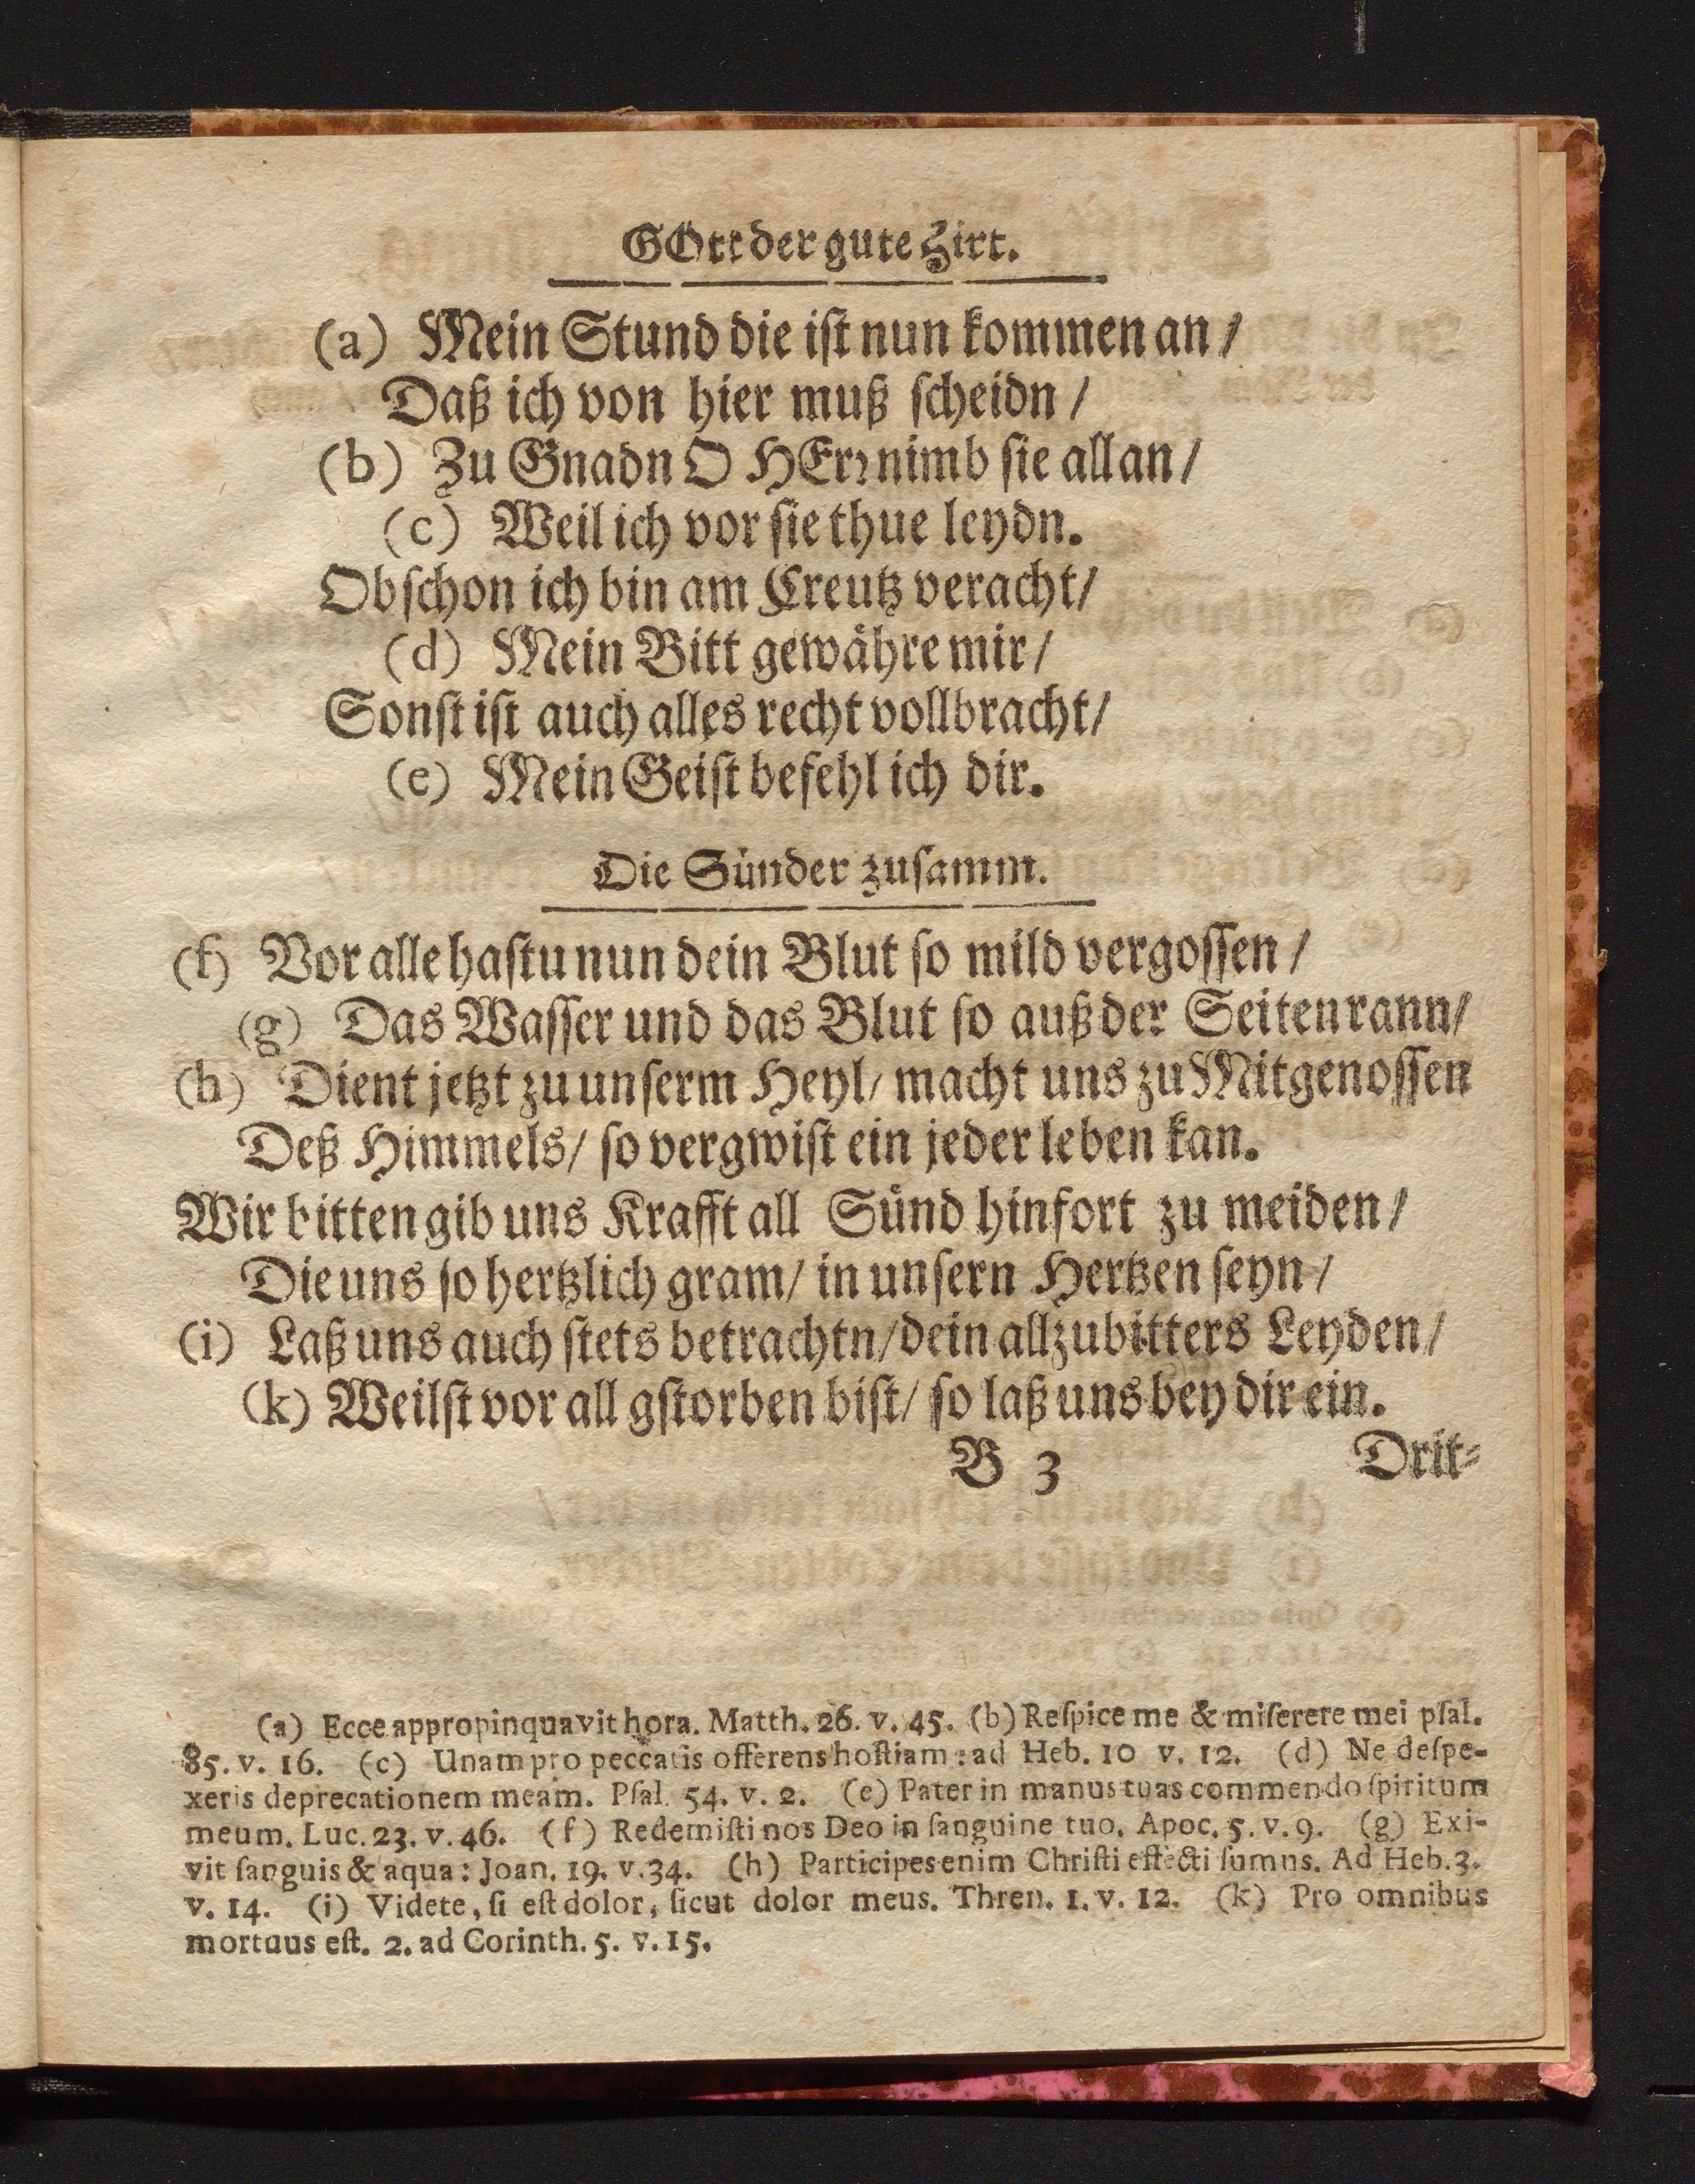 GOtt der gute Hirt.
(a) Mein Stund die ist nun kommen an /
Daß ich von hier muß scheidn /
(b) Zu Gnadn O HErꝛ nimb sie all an /
(c) Weil ich vor sie thue leydn.
Obschon ich bin am Creutz veracht /
(d) Mein Bitt gewähre mir /
Sonst ist auch alles recht vollbracht /
(e) Mein Geist befehl ich dir.
Die Sünder zusamm.
(f) Vor alle hastu nun dein Blut so mild vergossen /
(g) Das Wasser und das Blut so auß der Seiten rann /
(h) Dient jetzt zu unserm Heyl / macht uns zu Mitgenossen
Deß Himmels / so vergwist ein jeder leben kan.
Wir bitten gib uns Krafft all Sünd hinfort zu meiden /
Die uns so hertzlich gram / in unsern Hertzen seyn /
(i) Laß uns auch stets betrachtn / dein allzubitters Leyden /
(k) Weilst vor all gstorben bist / so laß uns bey dir ein.
B 3 Drit-
(a) Ecce appropinquavit hora. Matth. 26. v. 45. (b) Respice me & miserere mei psal.
85. v. 16. (c) Unam pro peccatis offerens hostiam : ad Heb. 10 v. 12. (d) Ne despe-
xeris deprecationem meam. Psal. 54. v. 2. (e) Pater in manus tuas commendo spiritum
meum. Luc. 23. v. 46. (f) Redemisti nos Deo in sanguine tuo. Apoc. 5. v. 9. (g) Exi-
vit sanguis & aqua : Joan. 19. v. 34. (h) Participes enim Christi effecti sumus. Ad Heb. 3.
v. 14. (i) Videte, si est dolor, sicut dolor meus. Thren. 1. v. 12. (k) Pro omnibus
mortuus est. 2. ad Corinth. 5. v. 15.